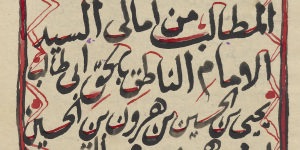 المطالب من امالى السيد
الامام الناطق بالحق ابى طالب
يحيى بن الحسين بن هرون بن الحسين